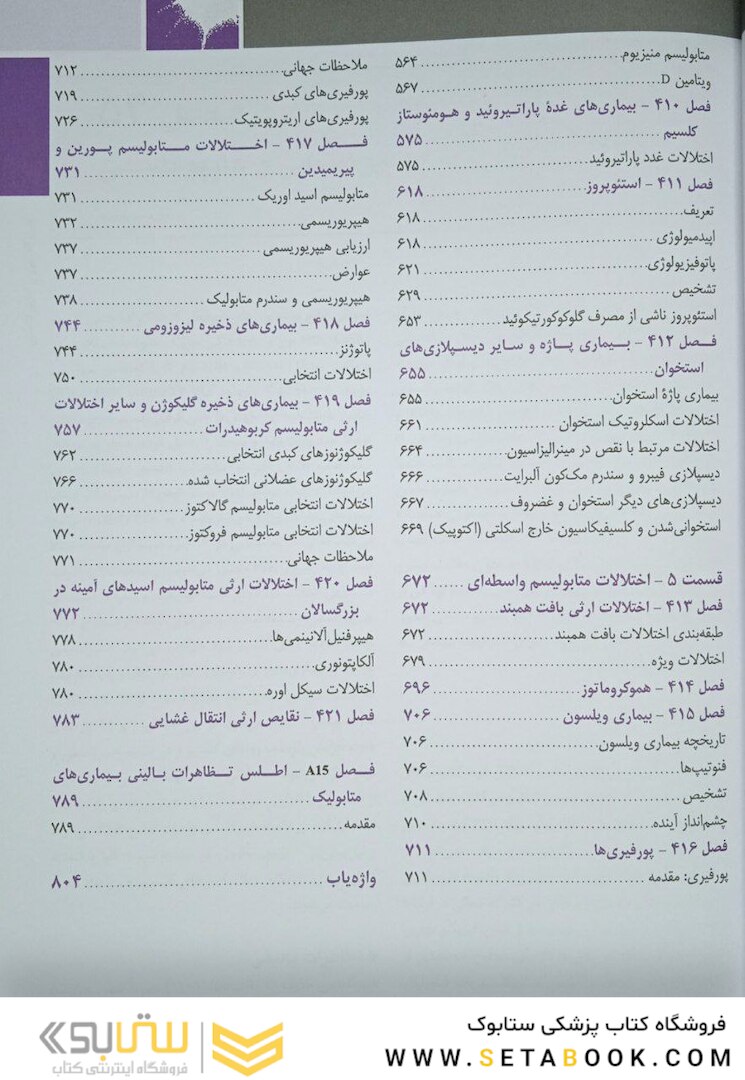 متابولیسم منیزیوم ۵۶۴
ویتامین D ۵۶۷
فصل ۴۱۰ - بیماری‌های غدهٔ پاراتیروئید و هومئوستاز
کلسیم ۵۷۵
اختلالات غدد پاراتیروئید ۵۷۵
فصل ۴۱۱ - استئوپروز ۶۱۸
تعریف ۶۱۸
اپیدمیولوژی ۶۱۸
پاتوفیزیولوژی ۶۲۱
تشخیص ۶۲۹
استئوپروز ناشی از مصرف گلوکوکورتیکوئید ۶۵۳
فصل ۴۱۲ - بیماری پاژه و سایر دیسپلازی‌های
استخوان ۶۵۵
بیماری پاژهٔ استخوان ۶۵۵
اختلالات اسکلروتیک استخوان ۶۶۱
اختلالات مرتبط با نقص در مینرالیزاسیون ۶۶۴
دیسپلازی فیبرو و سندرم مک‌کون آلبرایت ۶۶۶
دیسپلازی‌های دیگر استخوان و غضروف ۶۶۷
استخوانی‌شدن و کلسیفیکاسیون خارج اسکلتی (اکتوپیک) ۶۶۹
قسمت ۵ - اختلالات متابولیسم واسطه‌ای ۶۷۲
فصل ۴۱۳ - اختلالات ارثی بافت همبند ۶۷۲
طبقه‌بندی اختلالات بافت همبند ۶۷۲
اختلالات ویژه ۶۷۹
فصل ۴۱۴ - هموکروماتوز ۶۹۶
فصل ۴۱۵ - بیماری ویلسون ۷۰۶
تاریخچه بیماری ویلسون ۷۰۶
فنوتیپ‌ها ۷۰۶
تشخیص ۷۰۸
چشم‌انداز آینده ۷۱۰
فصل ۴۱۶ - پورفیری‌ها ۷۱۱
پورفیری: مقدمه ۷۱۱
ملاحظات جهانی ۷۱۲
پورفیری‌های کبدی ۷۱۹
پورفیری‌های اریتروپویتیک ۷۲۶
فصل ۴۱۷ - اختلالات متابولیسم پورین و
پیریمیدین ۷۳۱
متابولیسم اسید اوریک ۷۳۱
هیپریوریسمی ۷۳۲
ارزیابی هیپریوریسمی ۷۳۷
عوارض ۷۳۷
هیپریوریسمی و سندرم متابولیک ۷۳۸
فصل ۴۱۸ - بیماری‌های ذخیره لیزوزومی ۷۴۴
پاتوژنز ۷۴۴
اختلالات انتخابی ۷۵۰
فصل ۴۱۹ - بیماری‌های ذخیره گلیکوژن و سایر اختلالات
ارثی متابولیسم کربوهیدرات ۷۵۷
گلیکوژنوزهای کبدی انتخابی ۷۶۲
گلیکوژنوزهای عضلانی انتخاب شده ۷۶۶
اختلالات انتخابی متابولیسم گالاکتوز ۷۷۰
اختلالات انتخابی متابولیسم فروکتوز ۷۷۰
ملاحظات جهانی ۷۷۱
فصل ۴۲۰ - اختلالات ارثی متابولیسم اسیدهای آمینه در
بزرگسالان ۷۷۲
هیپرفنیل‌آلانینمی‌ها ۷۷۸
آلکاپتونوری ۷۸۰
اختلالات سیکل اوره ۷۸۰
فصل ۴۲۱ - نقایص ارثی انتقال غشایی ۷۸۳
فصل A15 - اطلس تظاهرات بالینی بیماری‌های
متابولیک ۷۸۹
مقدمه ۷۸۹
واژه‌یاب ۸۰۴
فروشگاه کتاب پزشکی ستابوک
WWW.SETABOOK.COM
ستابوک
فروشگاه اینترنتی کتاب